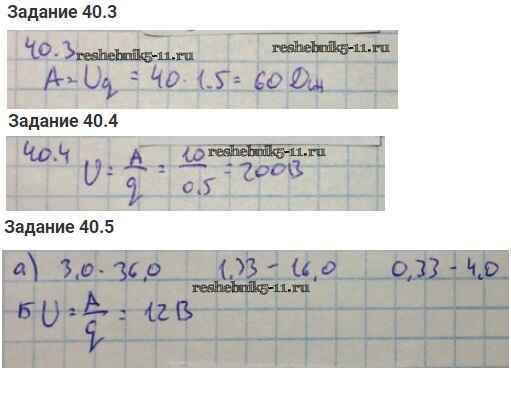 Задание 40.3
40.3 reshebnik5-11.ru reshebnik5-11.ru
A = Uq = 40 · 1.5 = 60 Дж
Задание 40.4
40.4 U = A/q = 10/0.5 = 200В reshebnik5-11.ru
Задание 40.5
а) 3,0 - 36,0 1,33 - 16,0 0,33 - 4,0
reshebnik5-11.ru
Б U = A/q = 12 В